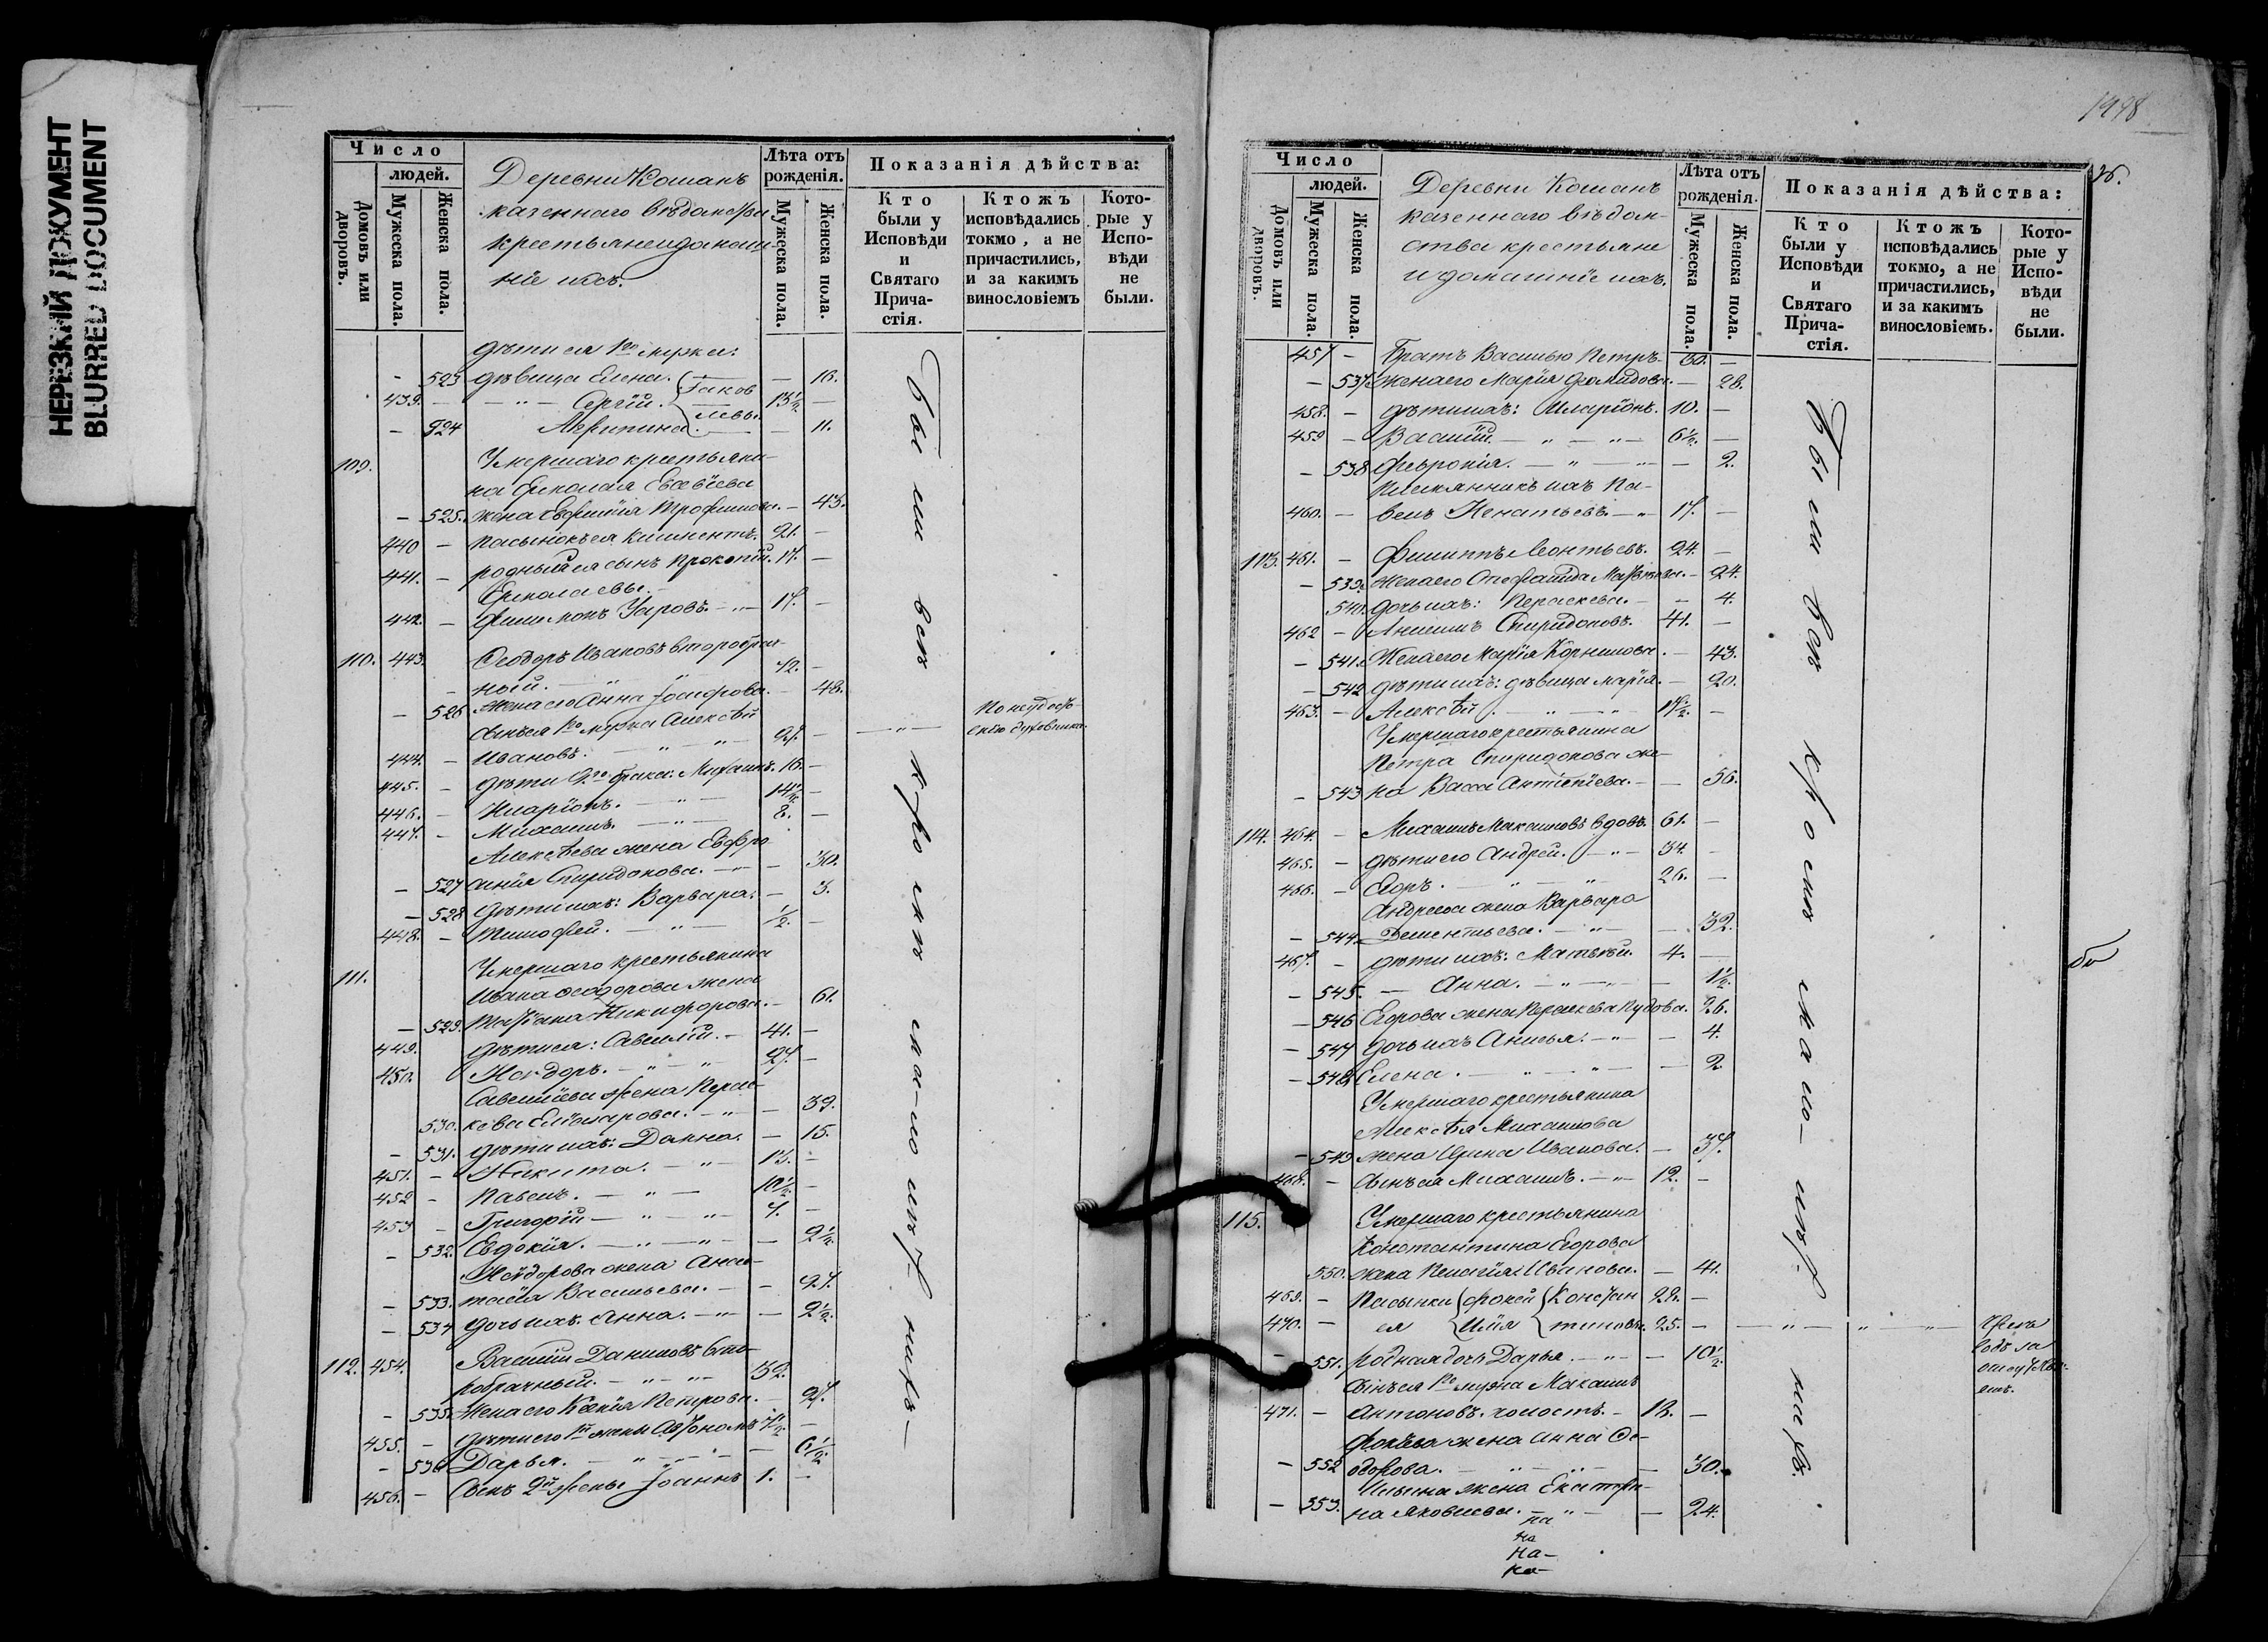 НЕРЕЗКИЙ ДОКУМЕНТ
BLURRED DOCUMENT
Число
людей.
Домовъ или дворовъ.
Мужеска пола.
Женска пола.
Деревни Кошанъ
казеннаго
крестьяне и домаш-
ніе ихъ.
Лѣта отъ рожденія.
Мужеска пола.
Женска пола.
Показанія дѣйства:
Кто были у Исповѣди и Святаго Прича-стія.
Ктожъ исповѣдались токмо, а не причастились, и за какимъ винословіемъ
Кото-рые у Испо-вѣди не были.
дѣти ея 1го мужа:
- 523 дѣвица Елена. - 16.
439. - Сергій. Іаков 13½ -
- 524 Акрипина. левы. - 11.
109. Умершаго крестьяни-
на Николая Евсѣева
- 525. жена Евфимія Трофимова. - 43.
440 - пасынокъ ея Климентъ. 21. -
441. - родный ея сынъ Прокопій. 17. -
Николаевы.
442. - Филимонъ Уаровъ. 17. -
110. 443. Ѳеодоръ Ивановъ второбрач-
ный. 42. -
- 526 Жена его Анна Іосифова. - 48.
сынъ ея 1го мужа Алексѣй
444. - Ивановъ. 27. -
445. - дѣти 2го брака: Михаилъ. 16. -
446. - Иларіонъ. 14½ -
447. - Михаилъ. 8. -
Алексѣева жена Евфро-
- 527 синія Спиридонова. - 30.
- 528 дѣти ихъ: Варвара. - 3.
448. - Тимофей. ½ -
111. Умершаго крестьянина
Ивана Ѳеодорова жена
- 529. Татіана Никифорова. - 61.
449. дѣти ея: Савелій. 41. -
450. Исидоръ. 27. -
Савеліева жена Параc-
530. кева - 39.
- 531. дѣти ихъ: Домна. - 15.
451. - Никита. 13. -
452 - Павелъ. 10½ -
453 - Григорій 7. -
- 532. Евдокія. - 2½
Исидорова жена Анас-
- 533. тасія Васильева. - 27.
- 534 дочь ихъ: Анна. - 2½
112. 454. Василій Даниловъ вто-
робрачный. 32.
- 535. Жена его Ксенія Петрова. - 27.
455. - дѣти его 1й жены Автономъ -
- 536 Дарья. - 6½
456. - Сынъ 2й жены Іоаннъ 1. -
Были всѣ
По неудосто-
енію духовника.
1998
Число
людей.
Домовъ или дворовъ.
Мужеска пола.
Женска пола.
Деревни Кошанъ
казеннаго вѣдом-
ства крестьяне
и домашніе ихъ.
Лѣта отъ рожденія.
Мужеска пола.
Женска пола.
Показанія дѣйства:
26.
Кто были у Исповѣди и Святаго Прича-стія.
Ктожъ исповѣдались токмо, а не причастились, и за какимъ винословіемъ.
Кото-рые у Испо-вѣди не были.
457 - Братъ Василью Петръ. 30. -
- 537. жена его Марія Фомидова. - 28.
458. - дѣти ихъ: Иларіонъ. 10. -
459 - Василій. 6½ -
- 538 Февронія. - 2.
Племянникъ ихъ Па-
460. - велъ Игнатьевъ. 17. -
113. 461. - Филиппъ Леонтьевъ. 24. -
- 539. Жена его Стефанида - 24.
540. дочь ихъ: Параскева. - 4.
462 - Анисимъ Спиридоновъ. 41. -
- 541. Жена его Марія Корнилова. - 43.
- 542 дѣти ихъ: дѣвица Марія. - 20.
463. - Алексѣй. 17½ -
Умершаго крестьянина
Петра Спиридонова же-
- 543 на Васса Антипіева. - 56.
114. 464. - Михаилъ Максимовъ вдовъ. 61. -
465. - дѣти его Андрей. 34. -
466. - Егоръ. 26. -
Андреева жена Варвара
- 544. Дементьева. - 32.
467. - дѣти ихъ: Матвѣй. 4. -
- 545. Анна. - 1½
- 546 Егорова жена Параскева Нудова. 26.
- 547 дочь ихъ Анисья. - 4.
- 548 Елена. - 2
Умершаго крестьянина
Алексѣя Михаилова
- 549 жена Ирина Иванова. - 37.
468. - сынъ ея Михаилъ. 12. -
115. Умершаго крестьянина
Константина Егорова
550. жена Пелагія Иванова. - 41.
469. - Пасынки Фокей Констан 28. -
470. - ея Илія тиновы. 25. -
- 551. родная дочь Дарья. - 10½
сынъ ея 1го мужа Максимъ
471. - Антоновъ холостъ. 18. -
Фокѣева жена Анна Ѳе-
- 552 одорова. - 30.
Ильина жена Екатери-
- 553. на Яковлева. - 24.
Были всѣ
на
на
на-
на-